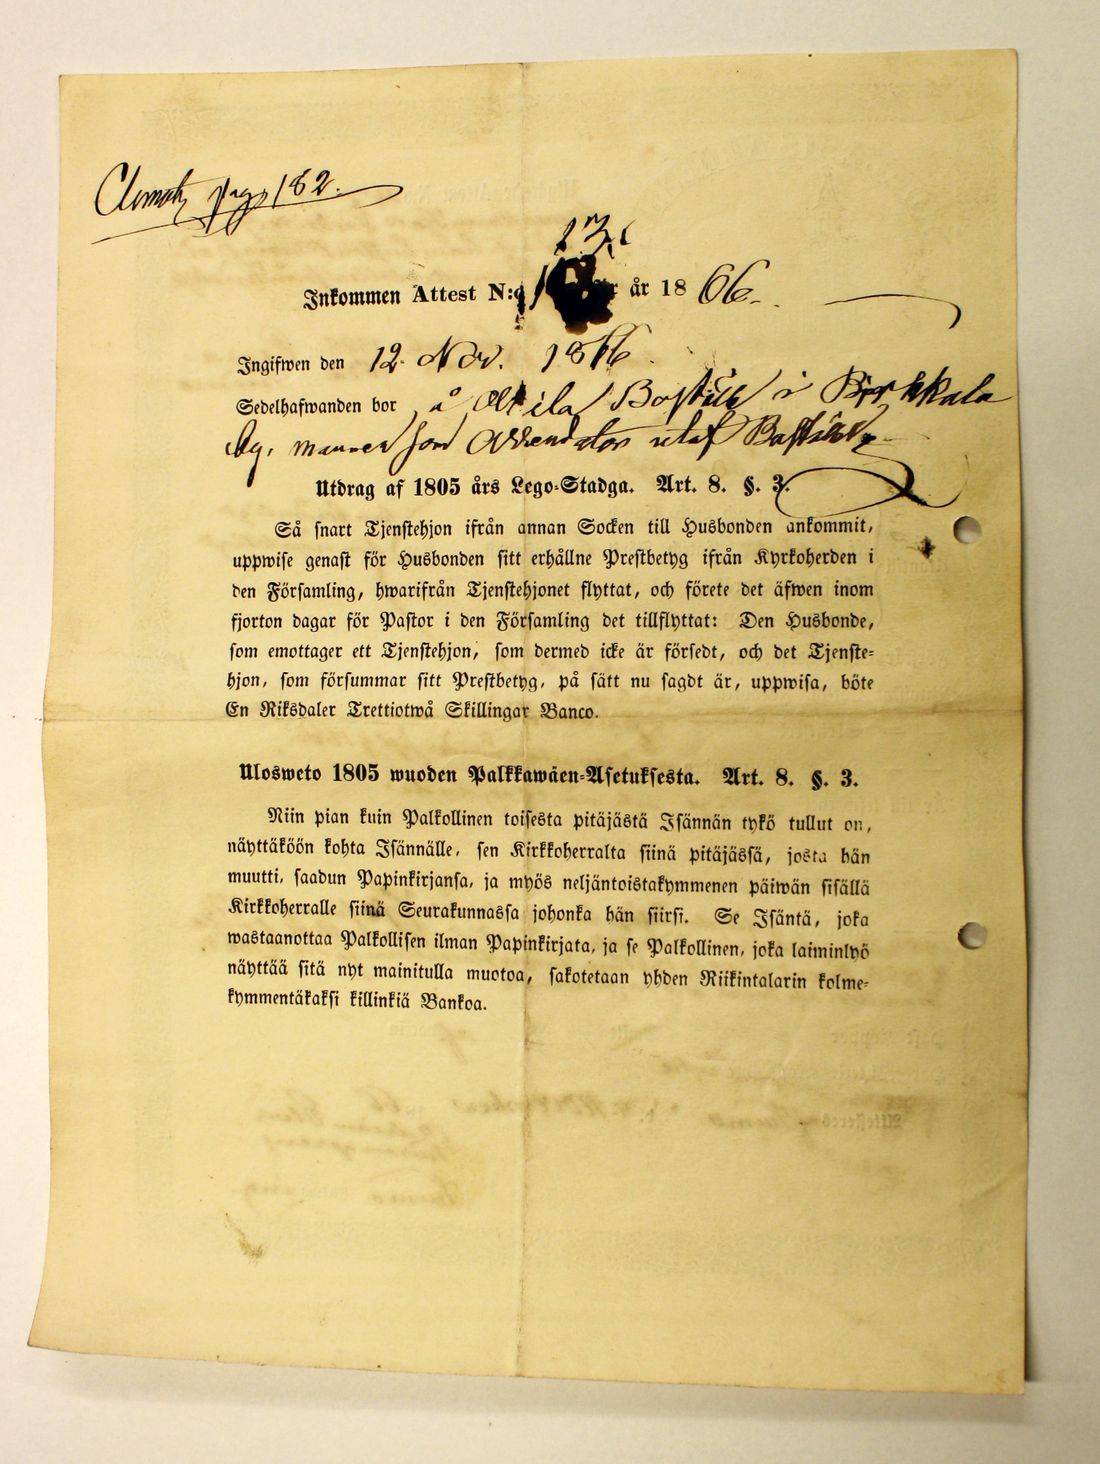 pag 182.
Inkommen Attest N:o för år 1866.
Ingifwen den 12. Nov. 1866.
Sedelhafwanden bor å Bastila i Birkkala
by, som Arrendator utaf
Utdrag af 1805 års Lego-Stadga. Art. 8. §. 3.
Så snart Tjenstehjon ifrån annan Socken till Husbonden ankommit,
uppwise genast för Husbonden sitt erhållne Prestbetyg ifrån Kyrkoherden i
den Församling, hwarifrån Tjenstehjonet flyttat, och förete det äfwen inom
fjorton dagar för Pastor i den Församling det tillflyttat: Den Husbonde,
som emottager ett Tjenstehjon, som dermed icke är försedt, och det Tjenste-
hjon, som försummar sitt Prestbetyg, på sätt nu sagdt är, uppwisa, böte
En Riksdaler Trettiotwå Skillingar Banco.
Ulosweto 1805 wuoden Palkkawäen-Asetuksesta. Art. 8. §. 3.
Niin pian kuin Palkollinen toisesta pitäjästä Isännän tykö tullut on,
näyttäköön kohta Isännälle, sen Kirkkoherralta siinä pitäjässä, josta hän
muutti, saadun Papinkirjansa, ja myös neljäntoistakymmenen päiwän sisällä
Kirkkoherralle siinä Seurakunnassa johonka hän siirsi. Se Isäntä, joka
wastaanottaa Palkollisen ilman Papinkirjata, ja se Palkollinen, joka laiminlyö
näyttää sitä nyt mainitulla muotoa, sakotetaan yhden Riikintalarin kolme-
kymmentäkaksi killinkiä Bankoa.